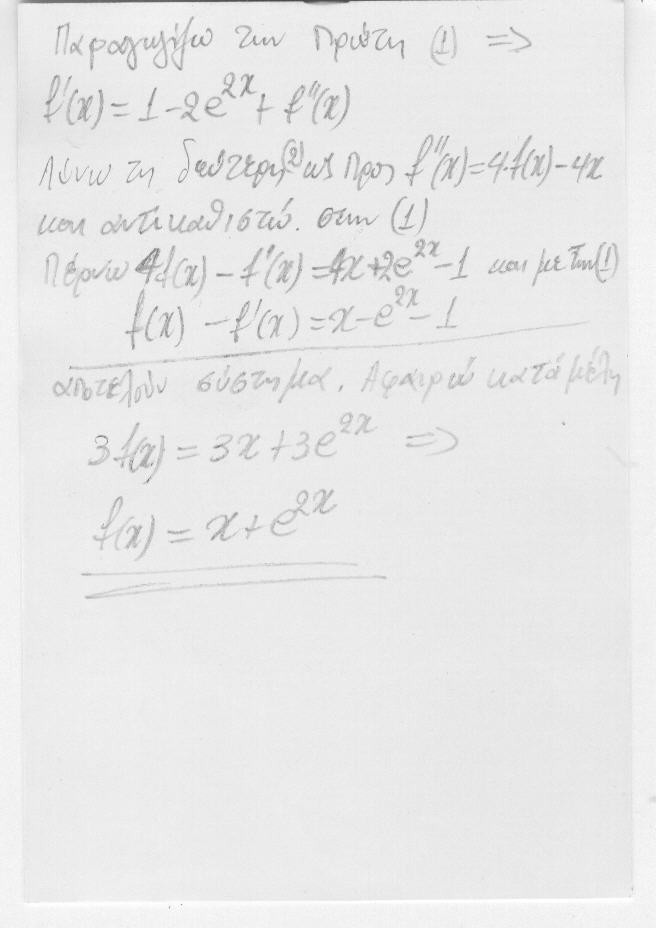 Παραγωγίζω την Πρώτη (1) =>
f'(x) = 1 - 2e^{2x} + f''(x)
Λύνω τη δεύτερη (2) ως προς f''(x) = 4·f(x) - 4x
και αντικαθιστώ. στην (1)
Πέρνω 4f(x) - f'(x) = 4x + 2e^{2x} - 1 και με την (1)
f(x) - f'(x) = x - e^{2x} - 1
αποτελούν σύστημα. Αφαιρώ κατά μέλη
3f(x) = 3x + 3e^{2x} =>
f(x) = x + e^{2x}